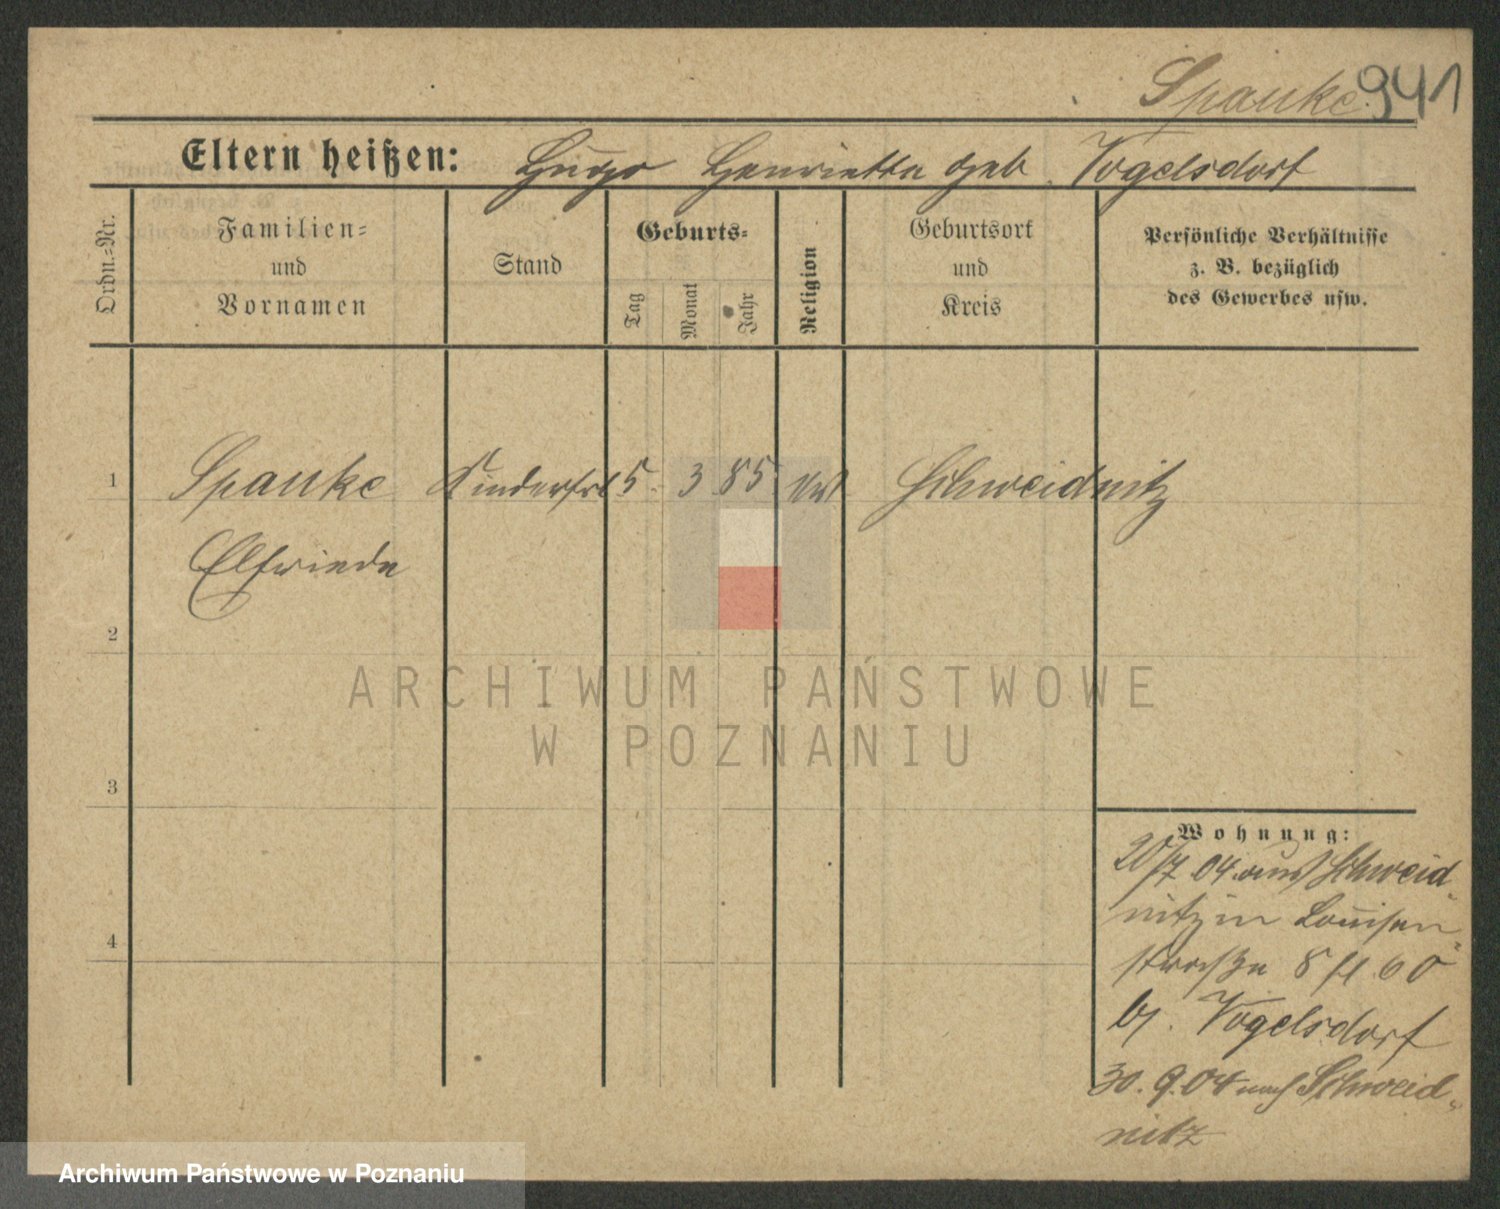 Spauke 941
Eltern heißen: Hugo Henriette geb. Vogelsdorf
Ordn.-Nr.
Familien-
und
Vornamen
Stand
Geburts-
Tag
Monat
Jahr
Religion
Geburtsort
und
Kreis
Persönliche Verhältnisse
z. B. bezüglich
des Gewerbes usw.
1 Spauke Kinderfrl 5. 3 85 Schweidnitz
Elfriede
2
3
4
Wohnung:
20/7 04 aus Schweid-
nitz in Louisen-
straße 8
b/. Vogelsdorf
30.9.04 nach Schweid-
nitz
ARCHIWUM PAŃSTWOWE
W POZNANIU
Archiwum Państwowe w Poznaniu